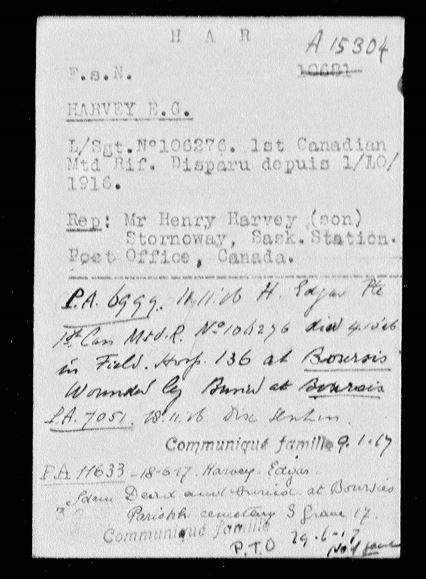 H A R
A 15304
10681
F.s.N.
HARVEY E.G.
L/Sgt.Nº106276. 1st Canadian
Mtd Rif. Disparu depuis 1/10/
1916.
Rep: Mr Henry Harvey (son)
Stornoway, Sask.Station.
Post Office, Canada.
P.A. 6999. 11.11.16 H. Edgar Pte
1st Can Mtd.R. Nº106276 died 4.10.16
in Field. Hosp. 136 at Boursis
Wounded leg Buried at Boursis
P.A. 7051. 18.11.16
Communiqué famille 9.1.17
P.A 11633 - 18-6-17. Harvey. Edgar.
Idem Dead and buried at Boursies
Parish cemetery 3 grave 17.
Communiqué famille
29-6-17
P.T.O